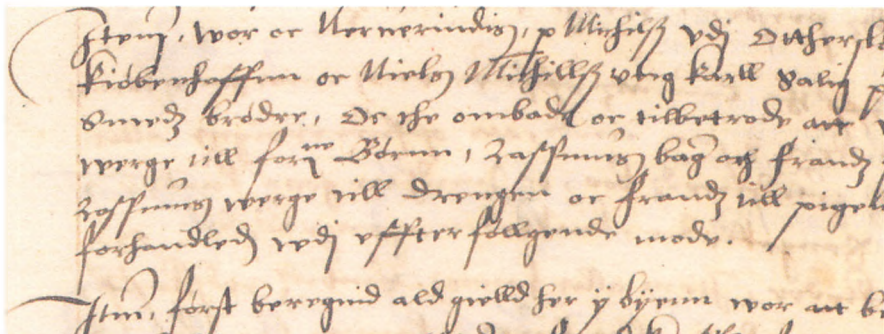 Item, wor oc Nerverindis, p Michilß vdj Otthersl
Kiøbenhaffnn oc Niels Michillß vng karll Salig p
Smedz brødre, Oc the ombade oc tilbetrode att
werge till forne Børnn, Rassmus bag och frandz
Rassmus werge till drengen oc frandz till pigen
forhandled vdj effterføllgende mode.
Item, først beregnid ald gielld her y byenn wor att be